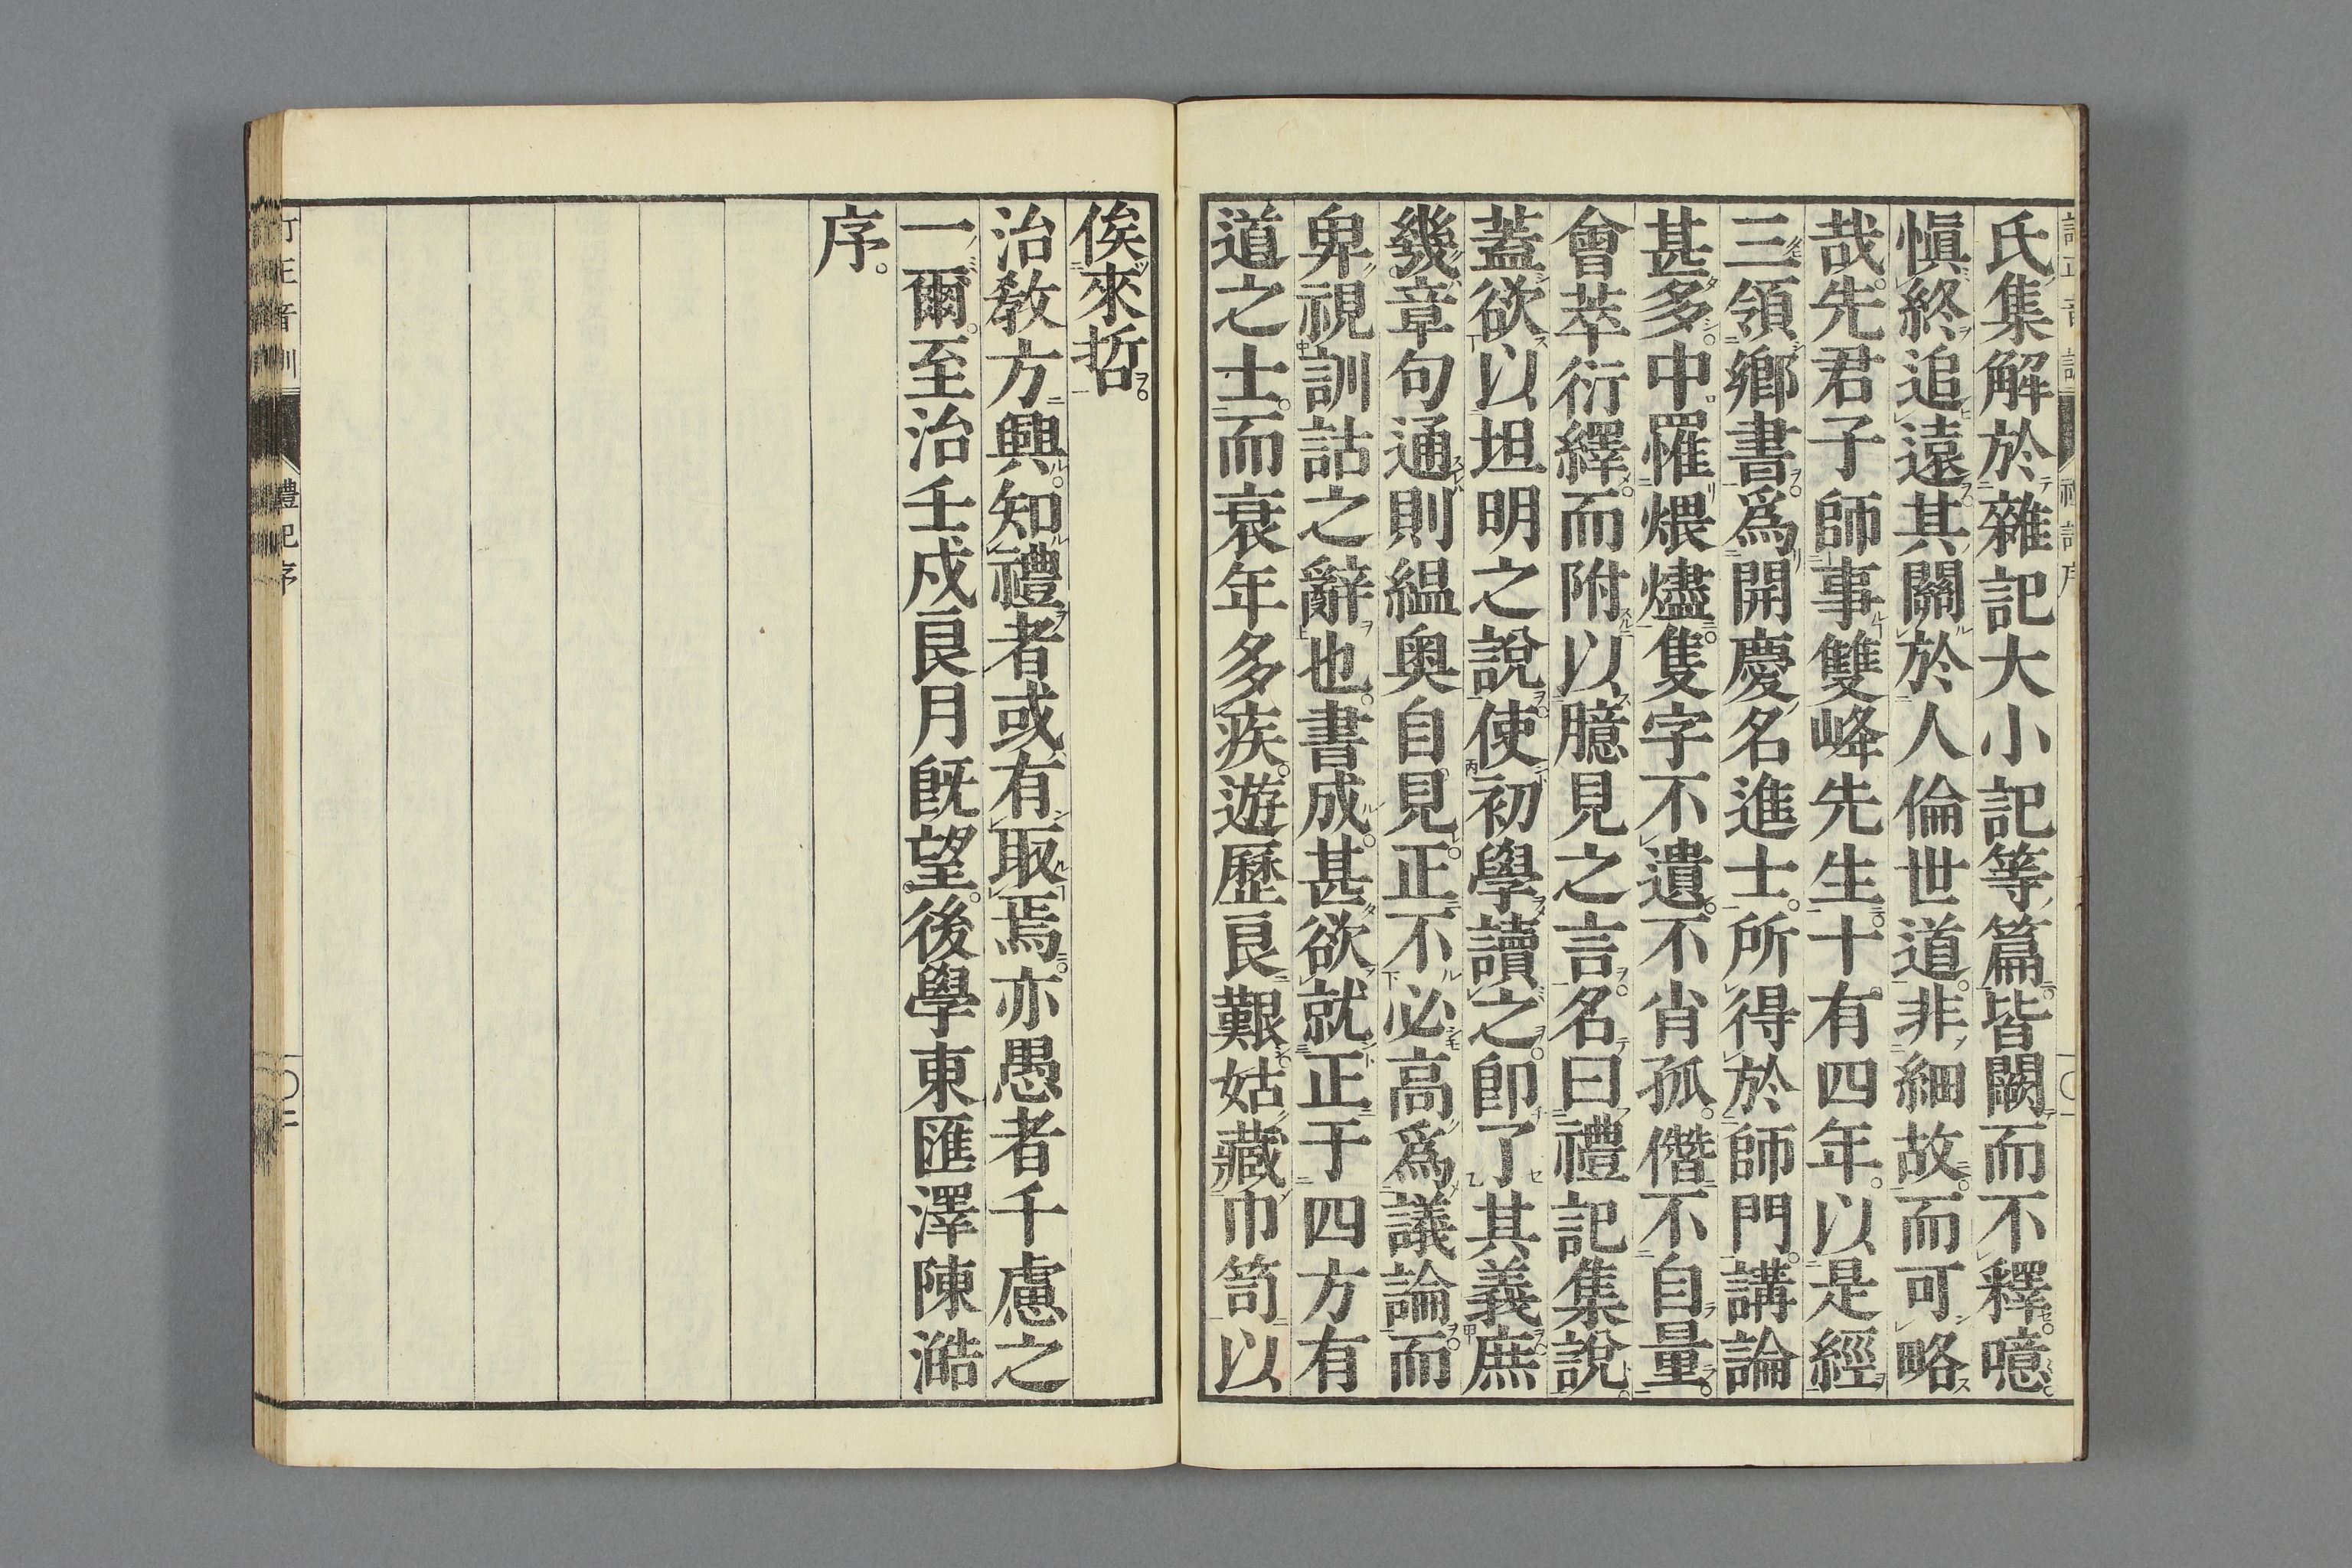 氏集解於雜記大小記等篇皆闕而不釋噫
愼終追遠其關於人倫世道非細故而可略
哉先君子師事雙峰先生十有四年以是經
三領鄉書爲開慶名進士所得於師門講論
甚多中罹煨燼隻字不遺不肖孤僭不自量
會萃衍繹而附以臆見之言名曰禮記集說
蓋欲以坦明之說使初學讀之卽了其義庶
幾章句通則縕奧自見正不必高爲議論而
卑視訓詁之辭也書成甚欲就正于四方有
道之士而衰年多疾遊歷良艱姑藏巾笥以
俟來哲
治敎方興知禮者或有取焉亦愚者千慮之
一爾至治壬戌良月旣望後學東匯澤陳澔
序
訂正音訓 禮記序 〇二